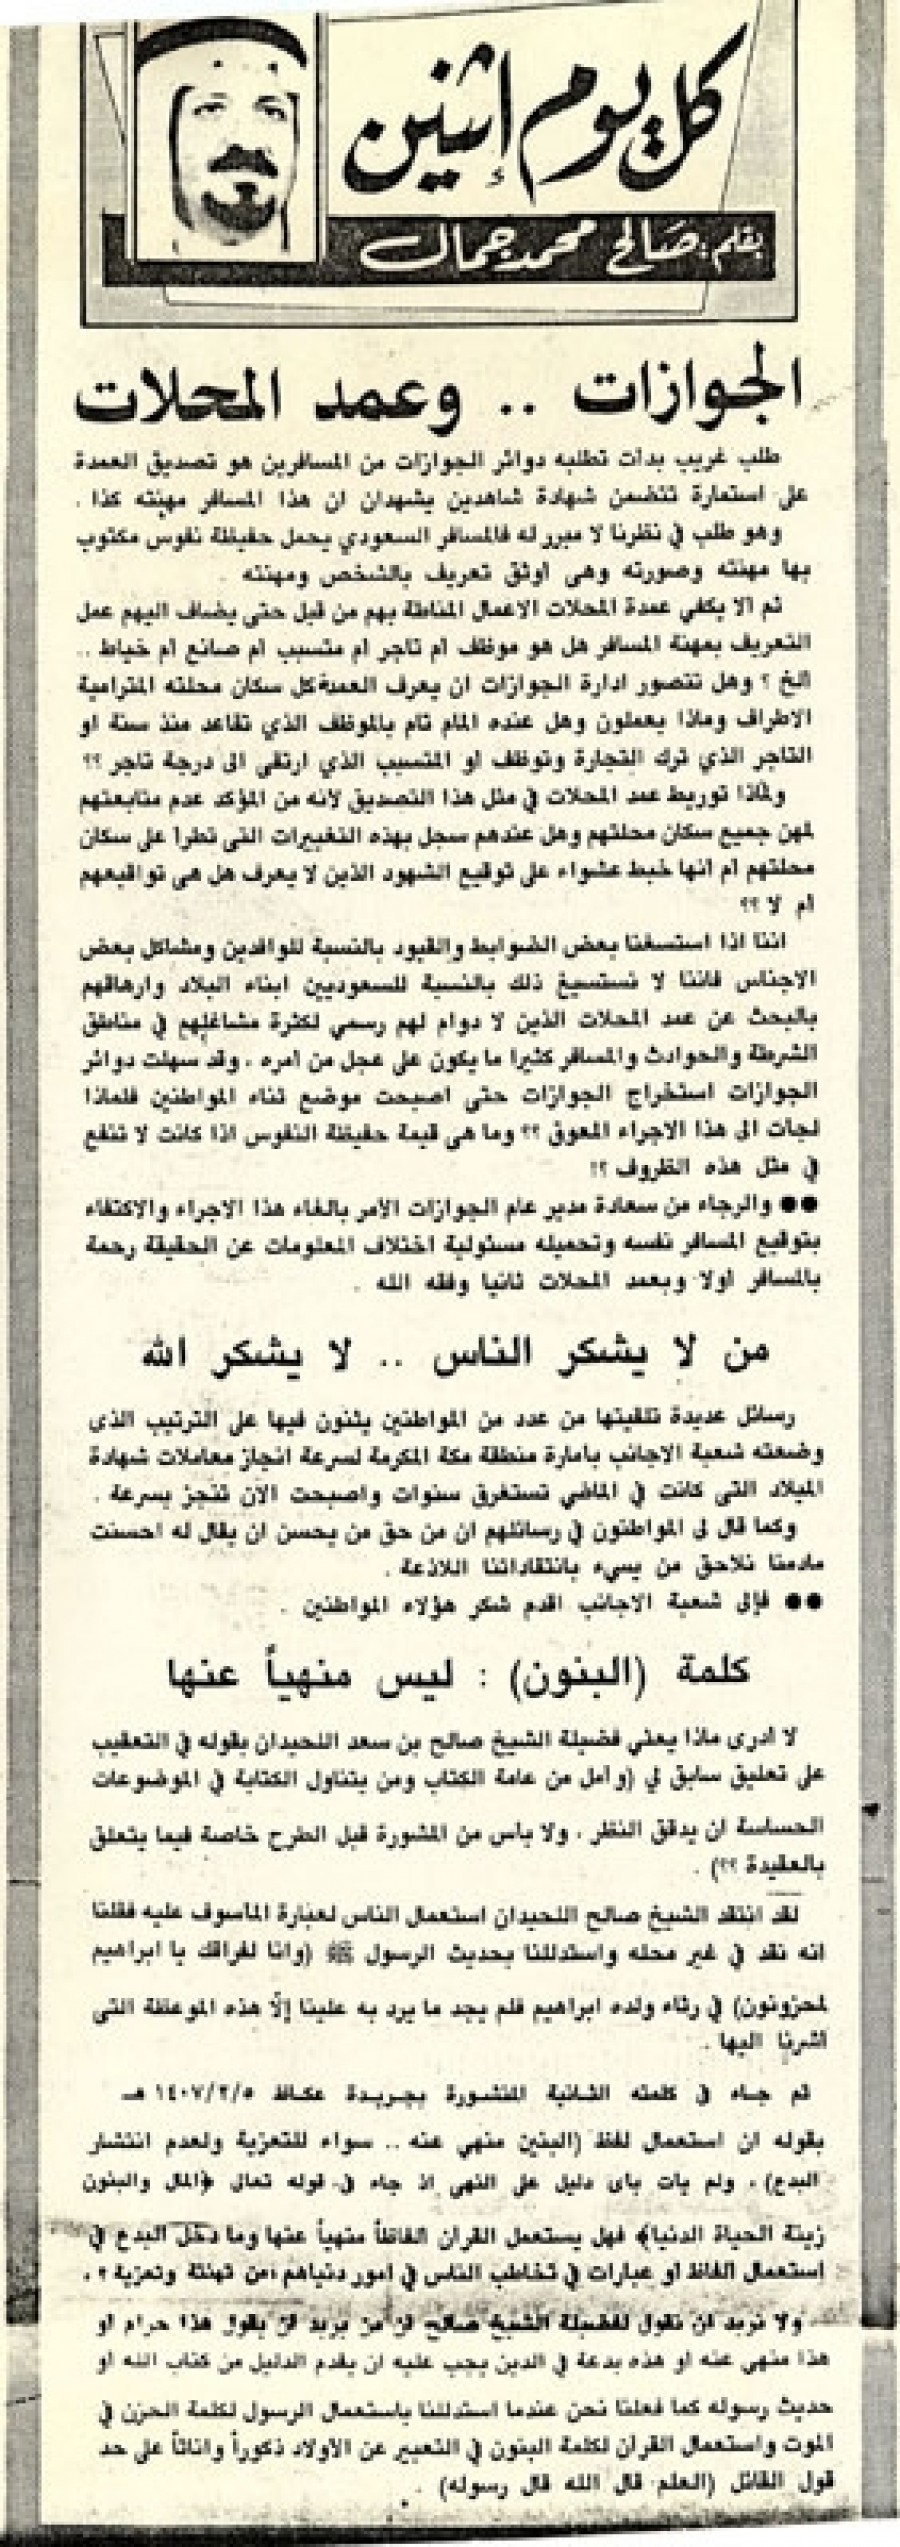 كل يوم إثنين
بقلم : صالح محمد جمال
الجوازات .. وعمد المحلات
طلب غريب بدأت تطلبه دوائر الجوازات من المسافرين هو تصديق العمدة
على استمارة تتضمن شهادة شاهدين يشهدان ان هذا المسافر مهنته كذا .
وهو طلب في نظرنا لا مبرر له فالمسافر السعودي يحمل حفيظة نفوس مكتوب
بها مهنته وصورته وهى اوثق تعريف بالشخص ومهنته .
ثم الا يكفي عمدة المحلات الاعمال المناطة بهم من قبل حتى يضاف اليهم عمل
التعريف بمهنة المسافر هل هو موظف ام تاجر ام متسبب ام صانع ام خياط ..
الخ ؟ وهل تتصور ادارة الجوازات ان يعرف العمدة كل سكان محلته المترامية
الاطراف وماذا يعملون وهل عنده المام تام بالموظف الذي تقاعد منذ سنة او
التاجر الذي ترك التجارة وتوظف او المتسبب الذي ارتقى الى درجة تاجر ؟؟
ولماذا توريط عمد المحلات في مثل هذا التصديق لانه من المؤكد عدم متابعتهم
لمهن جميع سكان محلتهم وهل عندهم سجل بهذه التغييرات التى تطرأ على سكان
محلتهم ام انها خبط عشواء على توقيع الشهود الذين لا يعرف هل هى تواقيعهم
ام لا ؟؟
اننا اذا استسغنا بعض الضوابط والقيود بالنسبة للوافدين ومشاكل بعض
الاجناس فاننا لا نستسيغ ذلك بالنسبة للسعوديين ابناء البلاد وارهاقهم
بالبحث عن عمد المحلات الذين لا دوام لهم رسمي لكثرة مشاغلهم في مناطق
الشرطة والحوادث والمسافر كثيرا ما يكون على عجل من امره . وقد سهلت دوائر
الجوازات استخراج الجوازات حتى اصبحت موضع ثناء المواطنين فلماذا
لجأت الى هذا الاجراء المعوق ؟؟ وما هى قيمة حفيظة النفوس اذا كانت لا تنفع
في مثل هذه الظروف ؟!
●● والرجاء من سعادة مدير عام الجوازات الأمر بالغاء هذا الاجراء والاكتفاء
بتوقيع المسافر نفسه وتحميله مسئولية اختلاف المعلومات عن الحقيقة رحمة
بالمسافر اولا وبعمد المحلات ثانيا وفقه الله .
من لا يشكر الناس .. لا يشكر الله
رسائل عديدة تلقيتها من عدد من المواطنين يثنون فيها على الترتيب الذى
وضعته شعبة الاجانب بامارة منطقة مكة المكرمة لسرعة انجاز معاملات شهادة
الميلاد التى كانت في الماضي تستغرق سنوات واصبحت الآن تنجز بسرعة .
وكما قال لى المواطنون في رسائلهم ان من حق من يحسن ان يقال له احسنت
مادمنا نلاحق من يسيء بانتقاداتنا اللاذعة .
●● فإلى شعبة الاجانب اقدم شكر هؤلاء المواطنين .
كلمة (البنون) : ليس منهياً عنها
لا أدرى ماذا يعني فضيلة الشيخ صالح بن سعد اللحيدان بقوله في التعقيب
على تعليق سابق لي (وآمل من عامة الكتاب ومن يتناول الكتابة في الموضوعات
الحساسة ان يدقق النظر . ولا بأس من المشورة قبل الطرح خاصة فيما يتعلق
بالعقيدة ؟؟) .
لقد انتقد الشيخ صالح اللحيدان استعمال الناس لعبارة المأسوف عليه فقلنا
انه نقد في غير محله واستدللنا بحديث الرسول ﷺ (وانا لفراقك يا ابراهيم
لمحزونون) في رثاء ولده ابراهيم فلم يجد ما يرد به علينا إلّا هذه الموعظة التى
اشرنا اليها .
ثم جاء في كلمته الثانية المنشورة بجريدة عكاظ ١٤٠٧/٢/٥ هـ
بقوله ان استعمال لفظ (البنين منهي عنه .. سواء للتعزية ولعدم انتشار
البدع) . ولم يأت بأى دليل على النهى اذ جاء في قوله تعالى ﴿المال والبنون
زينة الحياة الدنيا﴾ فهل يستعمل القرآن الفاظاً منهياً عنها وما دخل البدع في
استعمال الفاظ او عبارات في تخاطب الناس في امور دنياهم من تهنئة وتعزية ؟ .
ولا نريد ان نقول لفضيلة الشيخ صالح ان من يريد ان يقول هذا حرام او
هذا منهي عنه او هذه بدعة في الدين يجب عليه ان يقدم الدليل من كتاب الله او
حديث رسوله كما فعلنا نحن عندما استدللنا باستعمال الرسول لكلمة الحزن في
الموت واستعمال القرآن لكلمة البنون في التعبير عن الاولاد ذكوراً واناثاً على حد
قول القائل (العلم قال الله قال رسوله) .